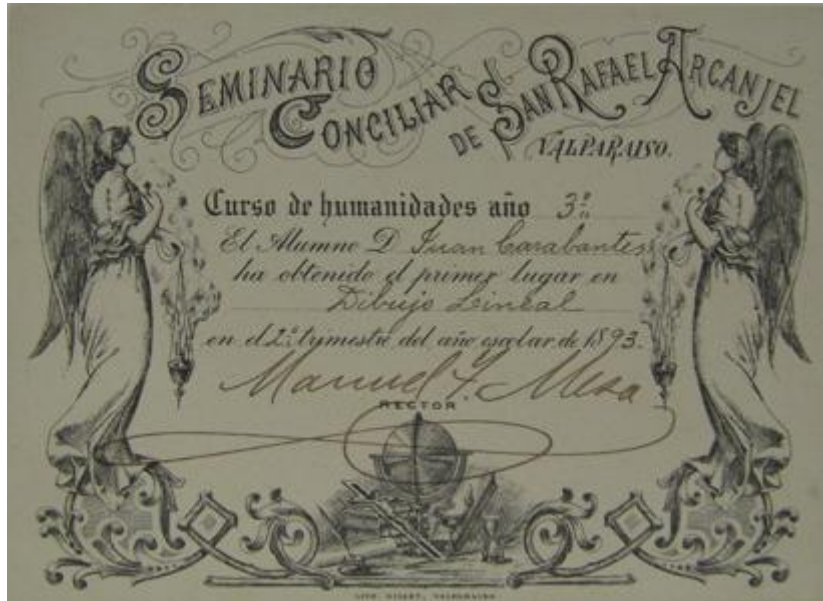 SEMINARIO
CONCILIAR
DE SAN RAFAEL ARCANJEL
VALPARAISO.
Curso de humanidades año 3º
El Alumno D Juan Carabantes
ha obtenido el primer lugar en
Dibujo Lineal
en el 2º trimestre del año escolar de 1893.
Manuel Mesa
RECTOR
LITH. VALPARAISO